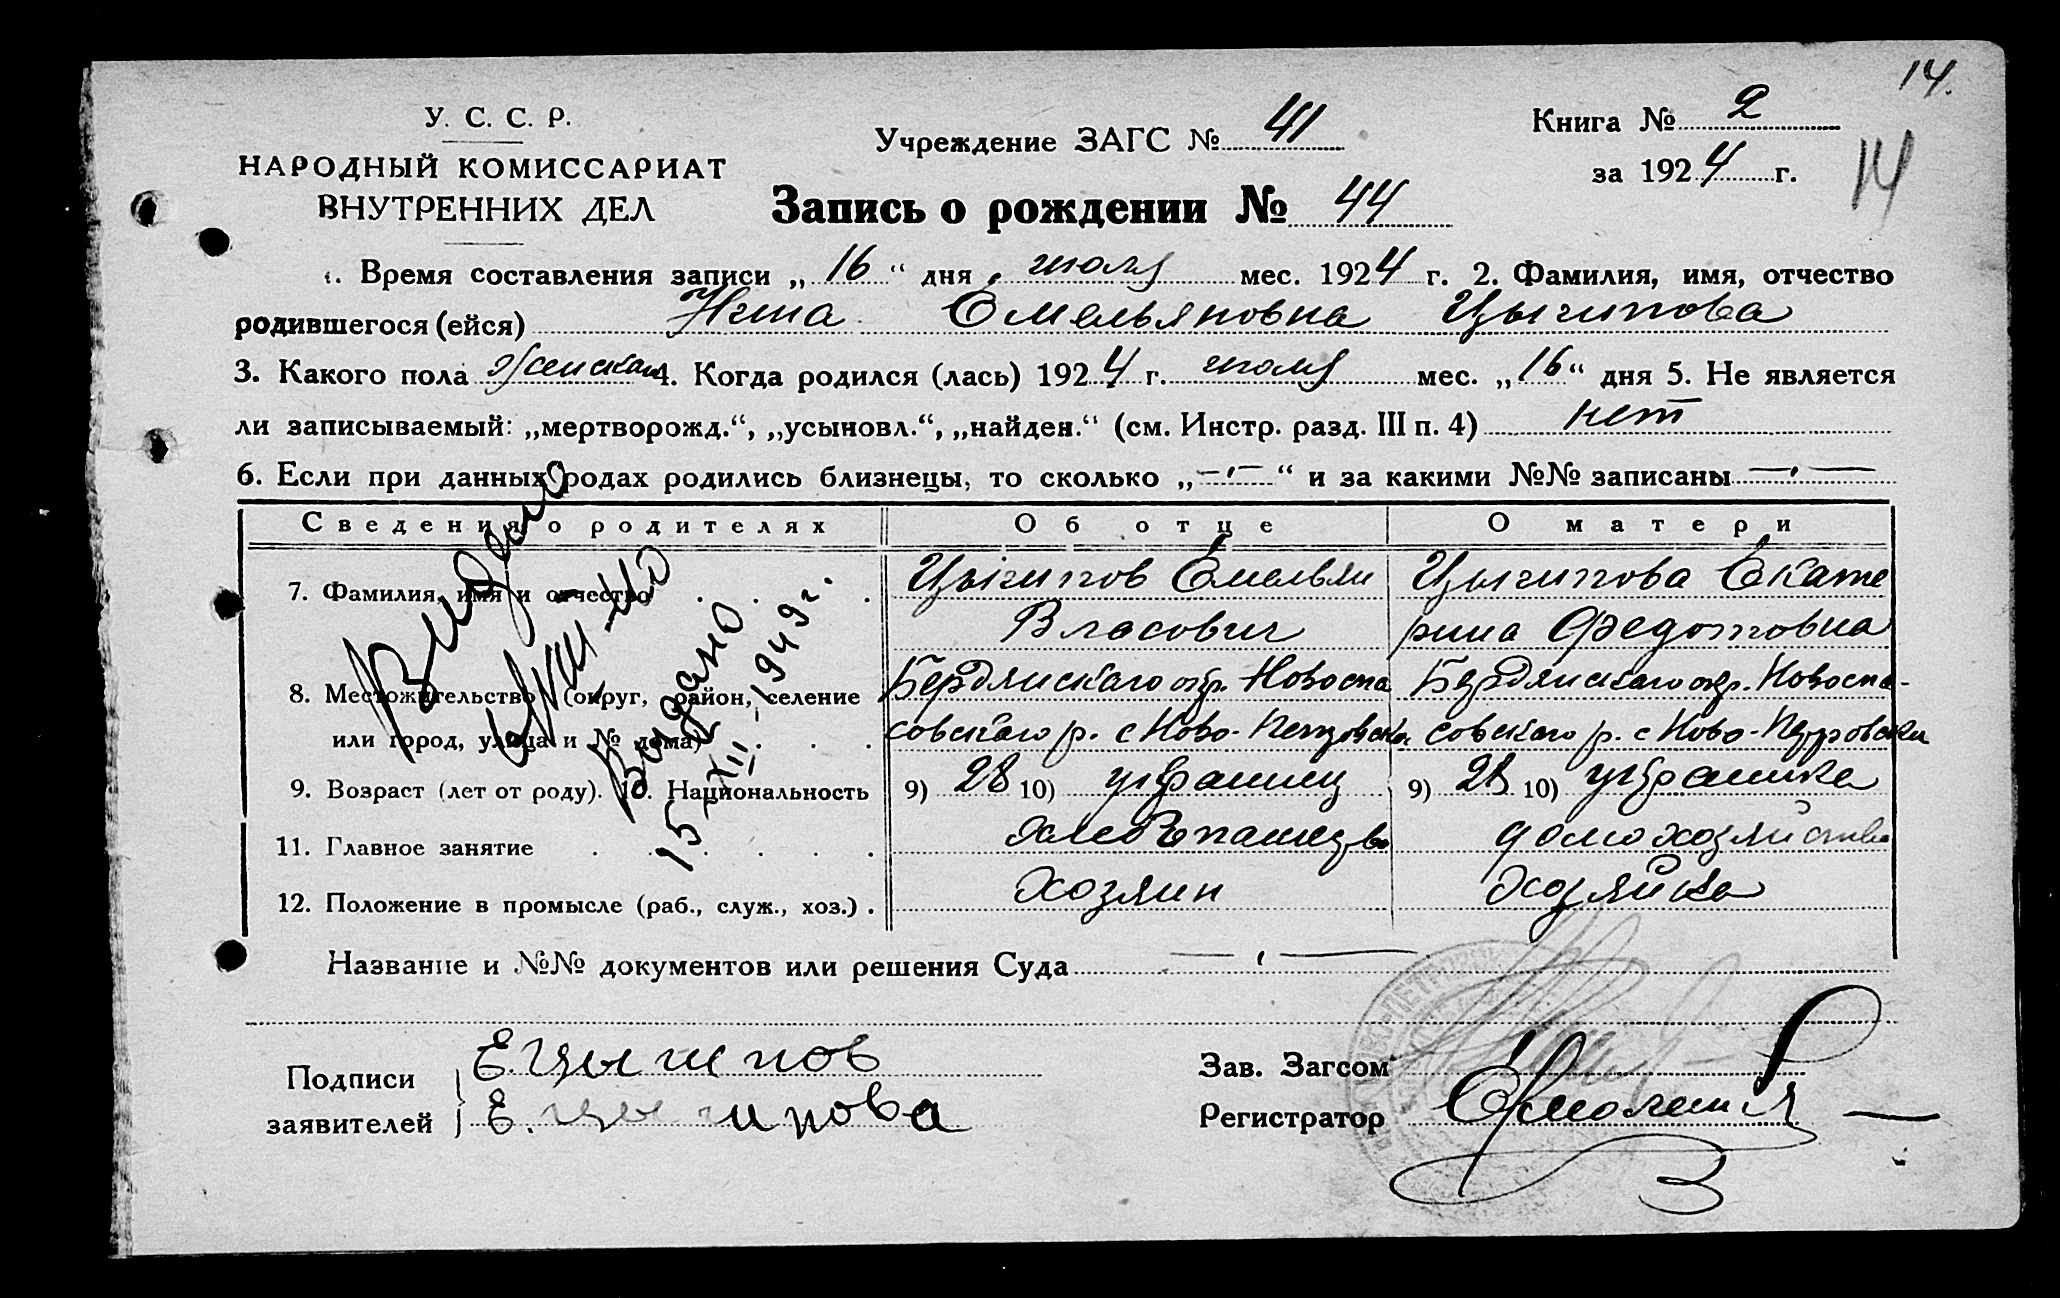 14.
У. С. С. Р.
НАРОДНЫЙ КОМИССАРИАТ
ВНУТРЕННИХ ДЕЛ
Учреждение ЗАГС № 41
Книга № 2
за 1924 г.
14
Запись о рождении № 44
1. Время составления записи „16“ дня июля мес. 1924 г. 2. Фамилия, имя, отчество
родившегося (ейся) Нина Емельяновна Цыгипова
3. Какого пола Женская 4. Когда родился (лась) 1924 г. июля мес. „16“ дня 5. Не является
ли записываемый: „мертворожд.“, „усыновл.“, „найден.“ (см. Инстр. разд. III п. 4) нет
6. Если при данных родах родились близнецы, то сколько „—“ и за какими №№ записаны —
Сведения о родителях Об отце О матери
7. Фамилия, имя и отчество Цыгипов Емельян Цыгипова Екате
Власович рина Федотовна
8. Местожительство (округ, район, селение Бердянского окр. Новоспа Бердянского окр. Новоспа-
или город, улица и № дома) совского р. с Ново-Петровска совского р. с Ново-Петровки
9. Возраст (лет от роду). 10. Национальность 9) 28 10) украинец 9) 28 10) украинка
11. Главное занятие хлебопашество домохозяйство
12. Положение в промысле (раб., служ., хоз.) хозяин хозяйка
Выдано
15-XII-1949 г.
Название и №№ документов или решения Суда —
Подписи Е. Цыгипов
заявителей Е. Цыгипова
Зав. Загсом
Регистратор